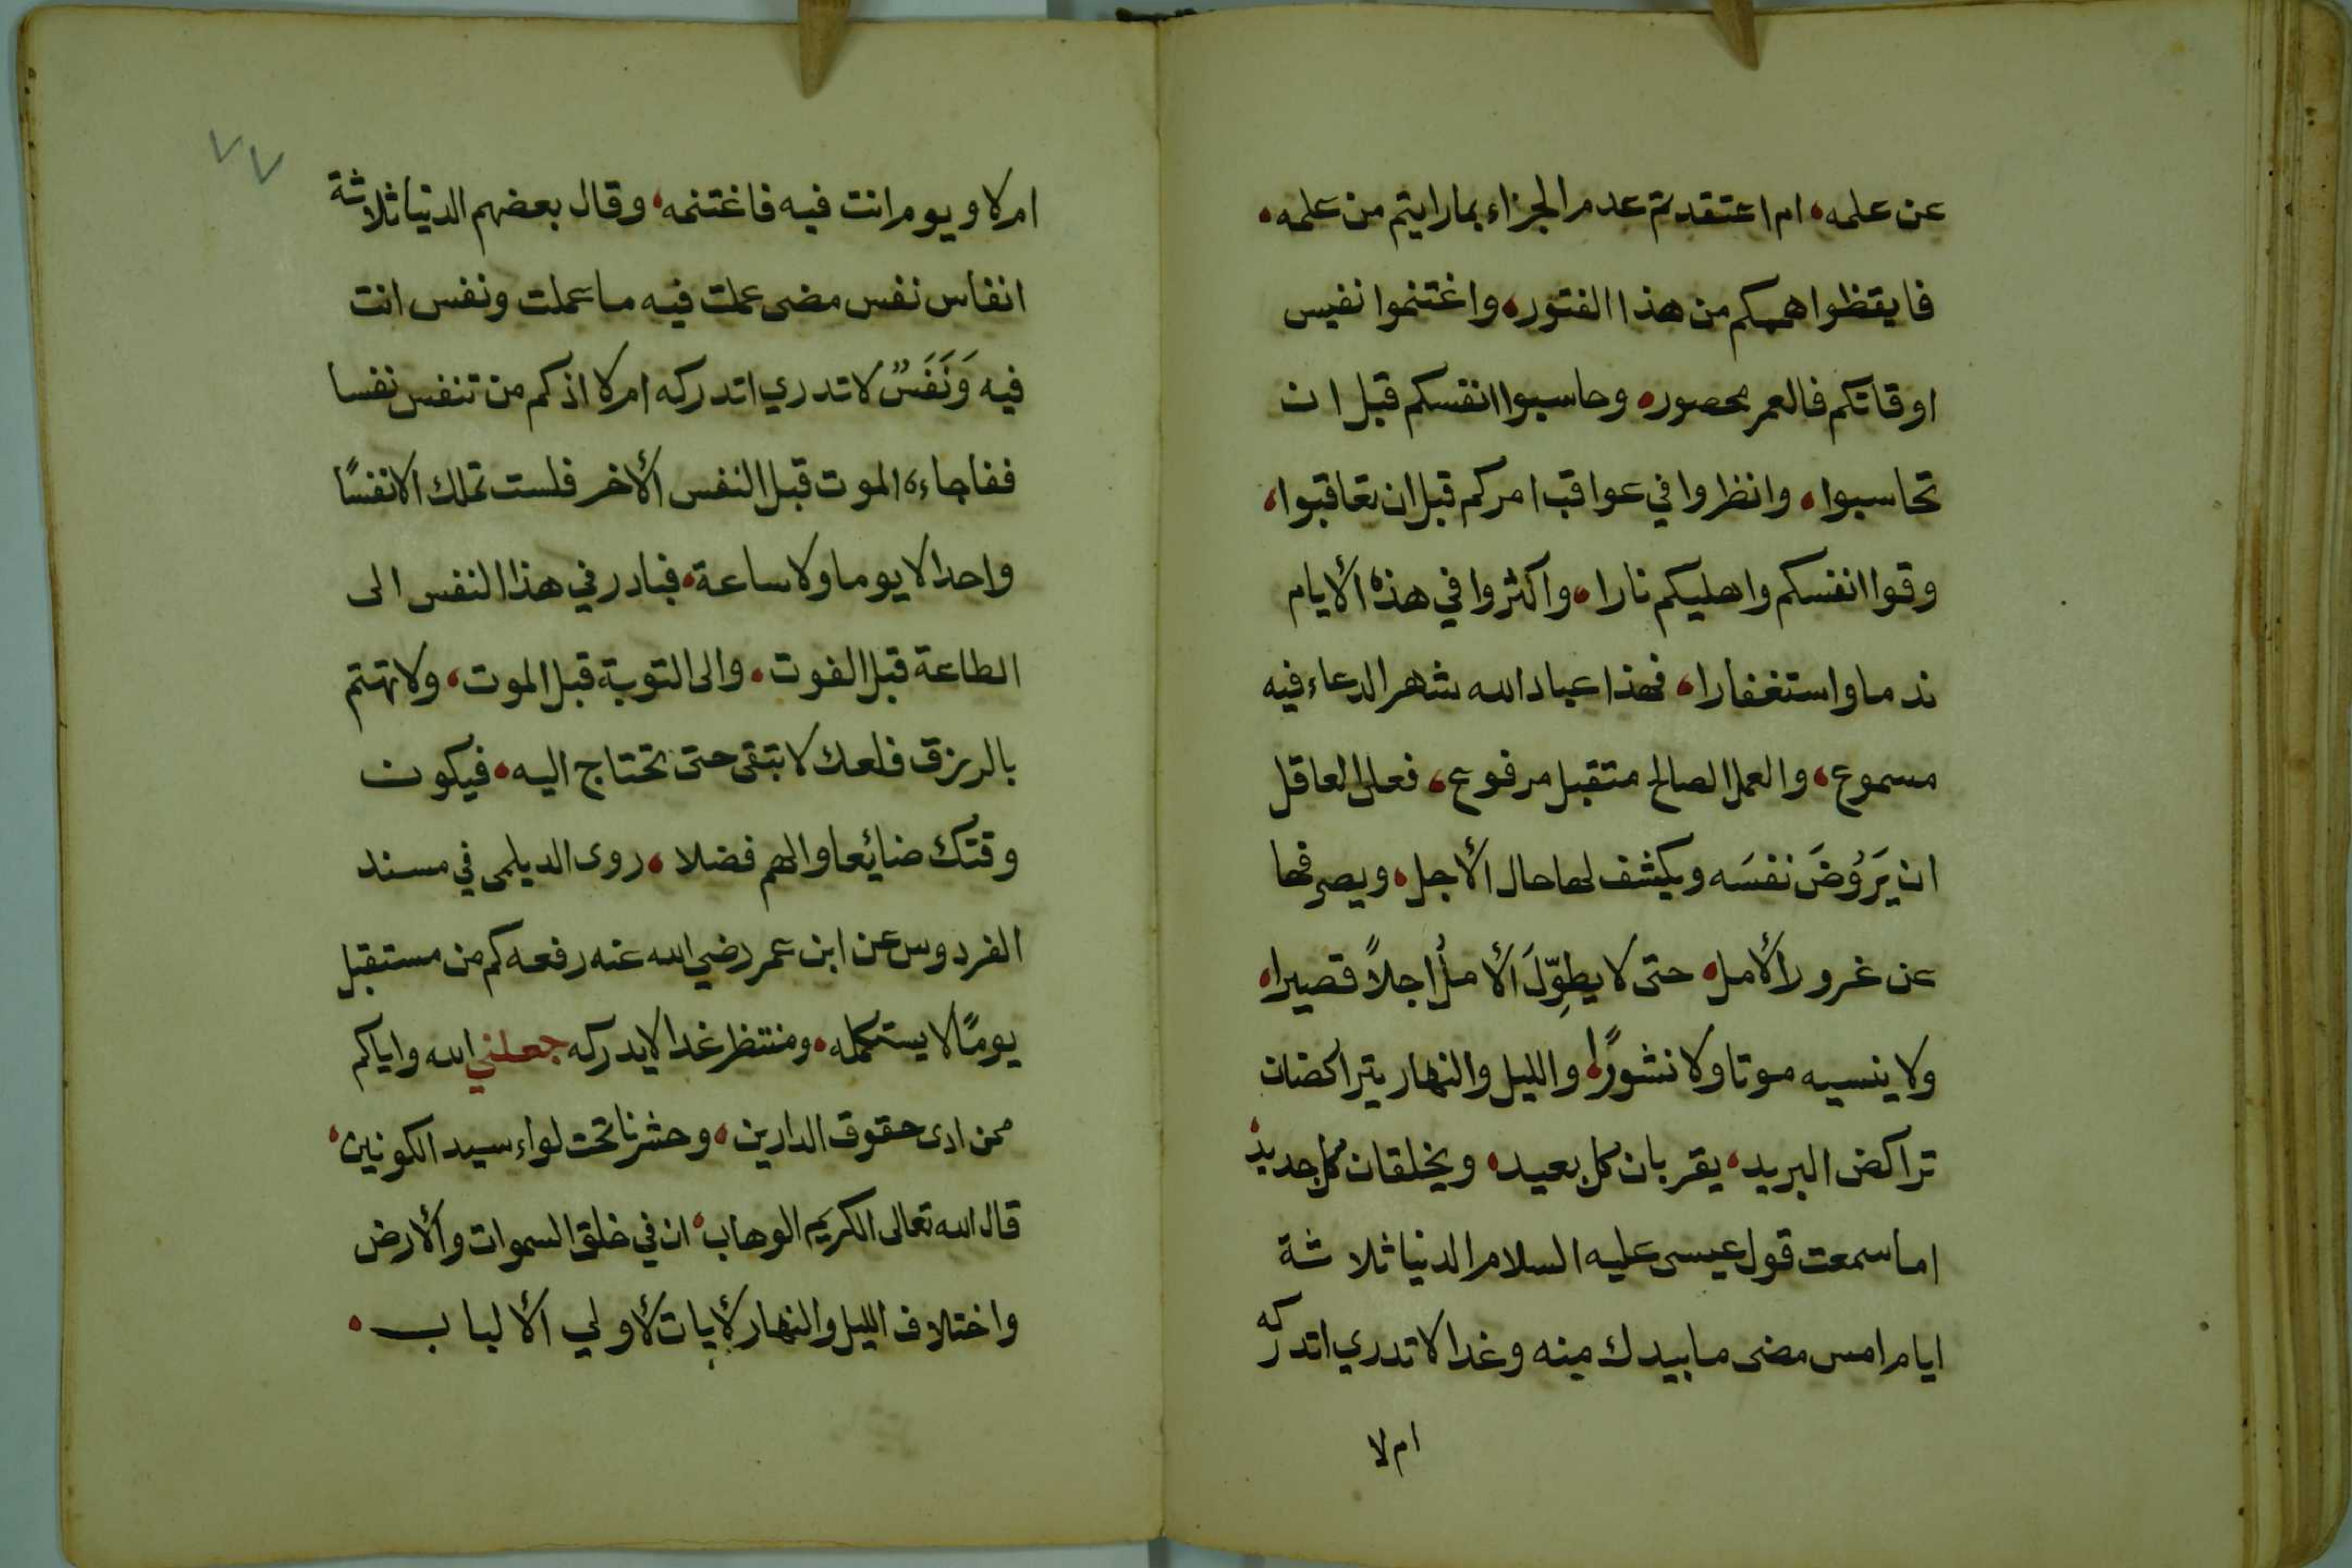 عن علمه، ام اعتقدتم عدم الجزاء بما رايتم من علمه،
فايقظوا هممكم من هذا الفتور، واغتنموا نفيس
اوقاتكم فالعمر محصور، وحاسبوا انفسكم قبل ان
تحاسبوا، وانظروا في عواقب امركم قبل ان تعاقبوا،
وقوا انفسكم واهليكم نارا، واكثروا في هذه الأيام
ندما واستغفارا، فهذا عباد الله شهر الدعاء فيه
مسموع، والعمل الصالح متقبل مرفوع، فعلى العاقل
ان يَرَوُضَ نفسَه ويكشف لها حال الأجل، ويصرفها
عن غرور الأمل، حتى لا يطوِّلَ الأملُ اجلاً قصيرا،
ولا ينسيه موتا ولا نشورًا، والليل والنهار يتراكضان
تراكض البريد، يقربان كل بعيد، ويخلقان كل جديد،
اما سمعت قول عيسى عليه السلام الدنيا ثلاثة
ايام امس مضى ما بيدك منه وغدا لا تدري اتدركه
ام لا
٧٧
ام لا ويوم انت فيه فاغتنمه، وقال بعضهم الدنيا ثلاثة
انفاس نفس مضى عملت فيه ما عملت ونفس انت
فيه وَنَفَسٌ لا تدري اتدركه ام لا اذ كم من تنفس نفسا
ففاجاءه الموت قبل النفس الأخر فلست تملك الا نفسًا
واحدا لا يوما ولا ساعة، فبادر في هذا النفس الى
الطاعة قبل الفوت، والى التوبة قبل الموت، ولا تهتم
بالرزق فلعلك لا تبقى حتى تحتاج اليه، فيكون
وقتك ضايعا والهم فضلا، روى الديلمى في مسند
الفردوس عن ابن عمر رضي الله عنه رفعه كم من مستقبل
يومًا لا يستكمله، ومنتظر غدا لا يدركه جعلني الله واياكم
ممن ادى حقوق الدارين، وحشرنا تحت لواء سيد الكونين،
قال الله تعالى الكريم الوهاب، ان في خلق السموات والأرض
واختلاف الليل والنهار لأيات لأولي الألباب،